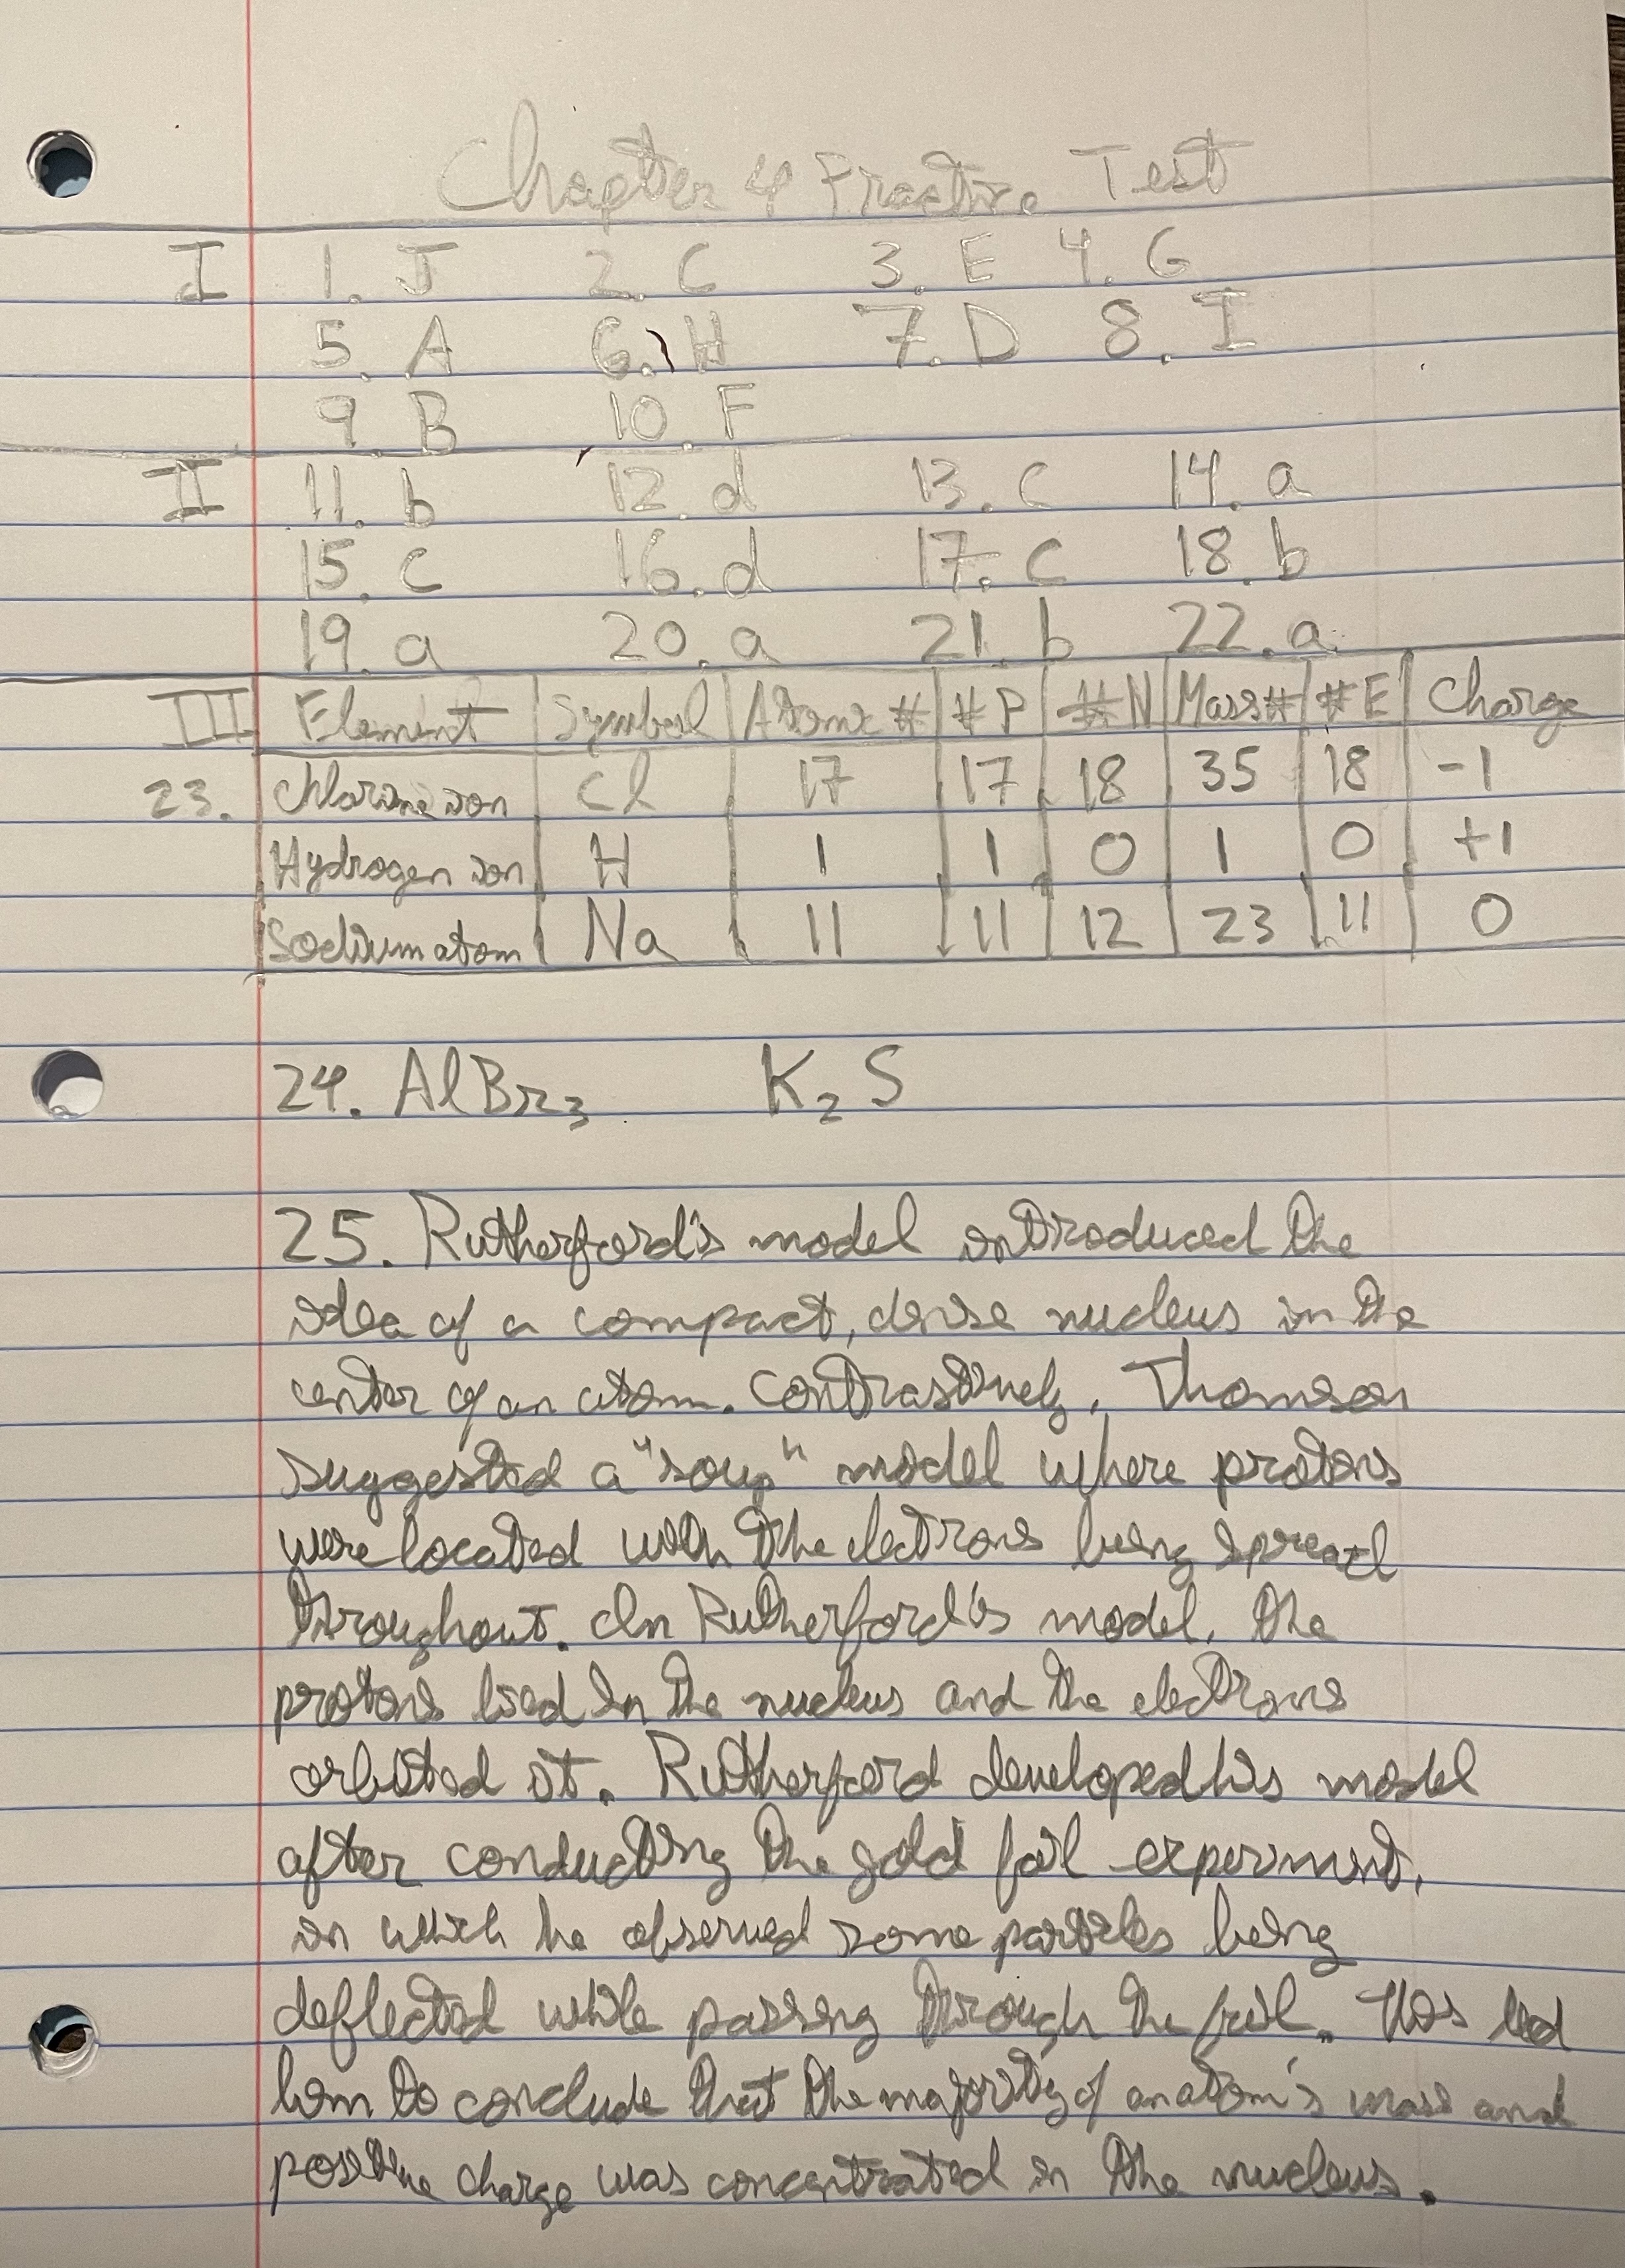 Chapter 4 Practice Test
I 1. J 2. C 3. E 4. G
5. A 6. H 7. D 8. I
9. B 10. F
II 11. b 12. d 13. c 14. a
15. c 16. d 17. c 18. b
19. a 20. a 21. b 22. a
III Element Symbol Atomic # # P # N Mass # # E Charge
23. Chlorine ion Cl 17 17 18 35 18 -1
Hydrogen ion H 1 1 0 1 0 +1
Sodium atom Na 11 11 12 23 11 0
24. AlBr₃ K₂S
25. Rutherford's model introduced the
idea of a compact, dense nucleus in the
center of an atom. Contrastively, Thomson
suggested a "soup" model where protons
were located with the electrons being spread
throughout. In Rutherford's model, the
protons lied in the nucleus and the electrons
orbited it. Rutherford developed his model
after conducting the gold foil experiment,
in which he observed some particles being
deflected while passing through the foil. This led
him to conclude that the majority of an atom's mass and
positive charge was concentrated in the nucleus.